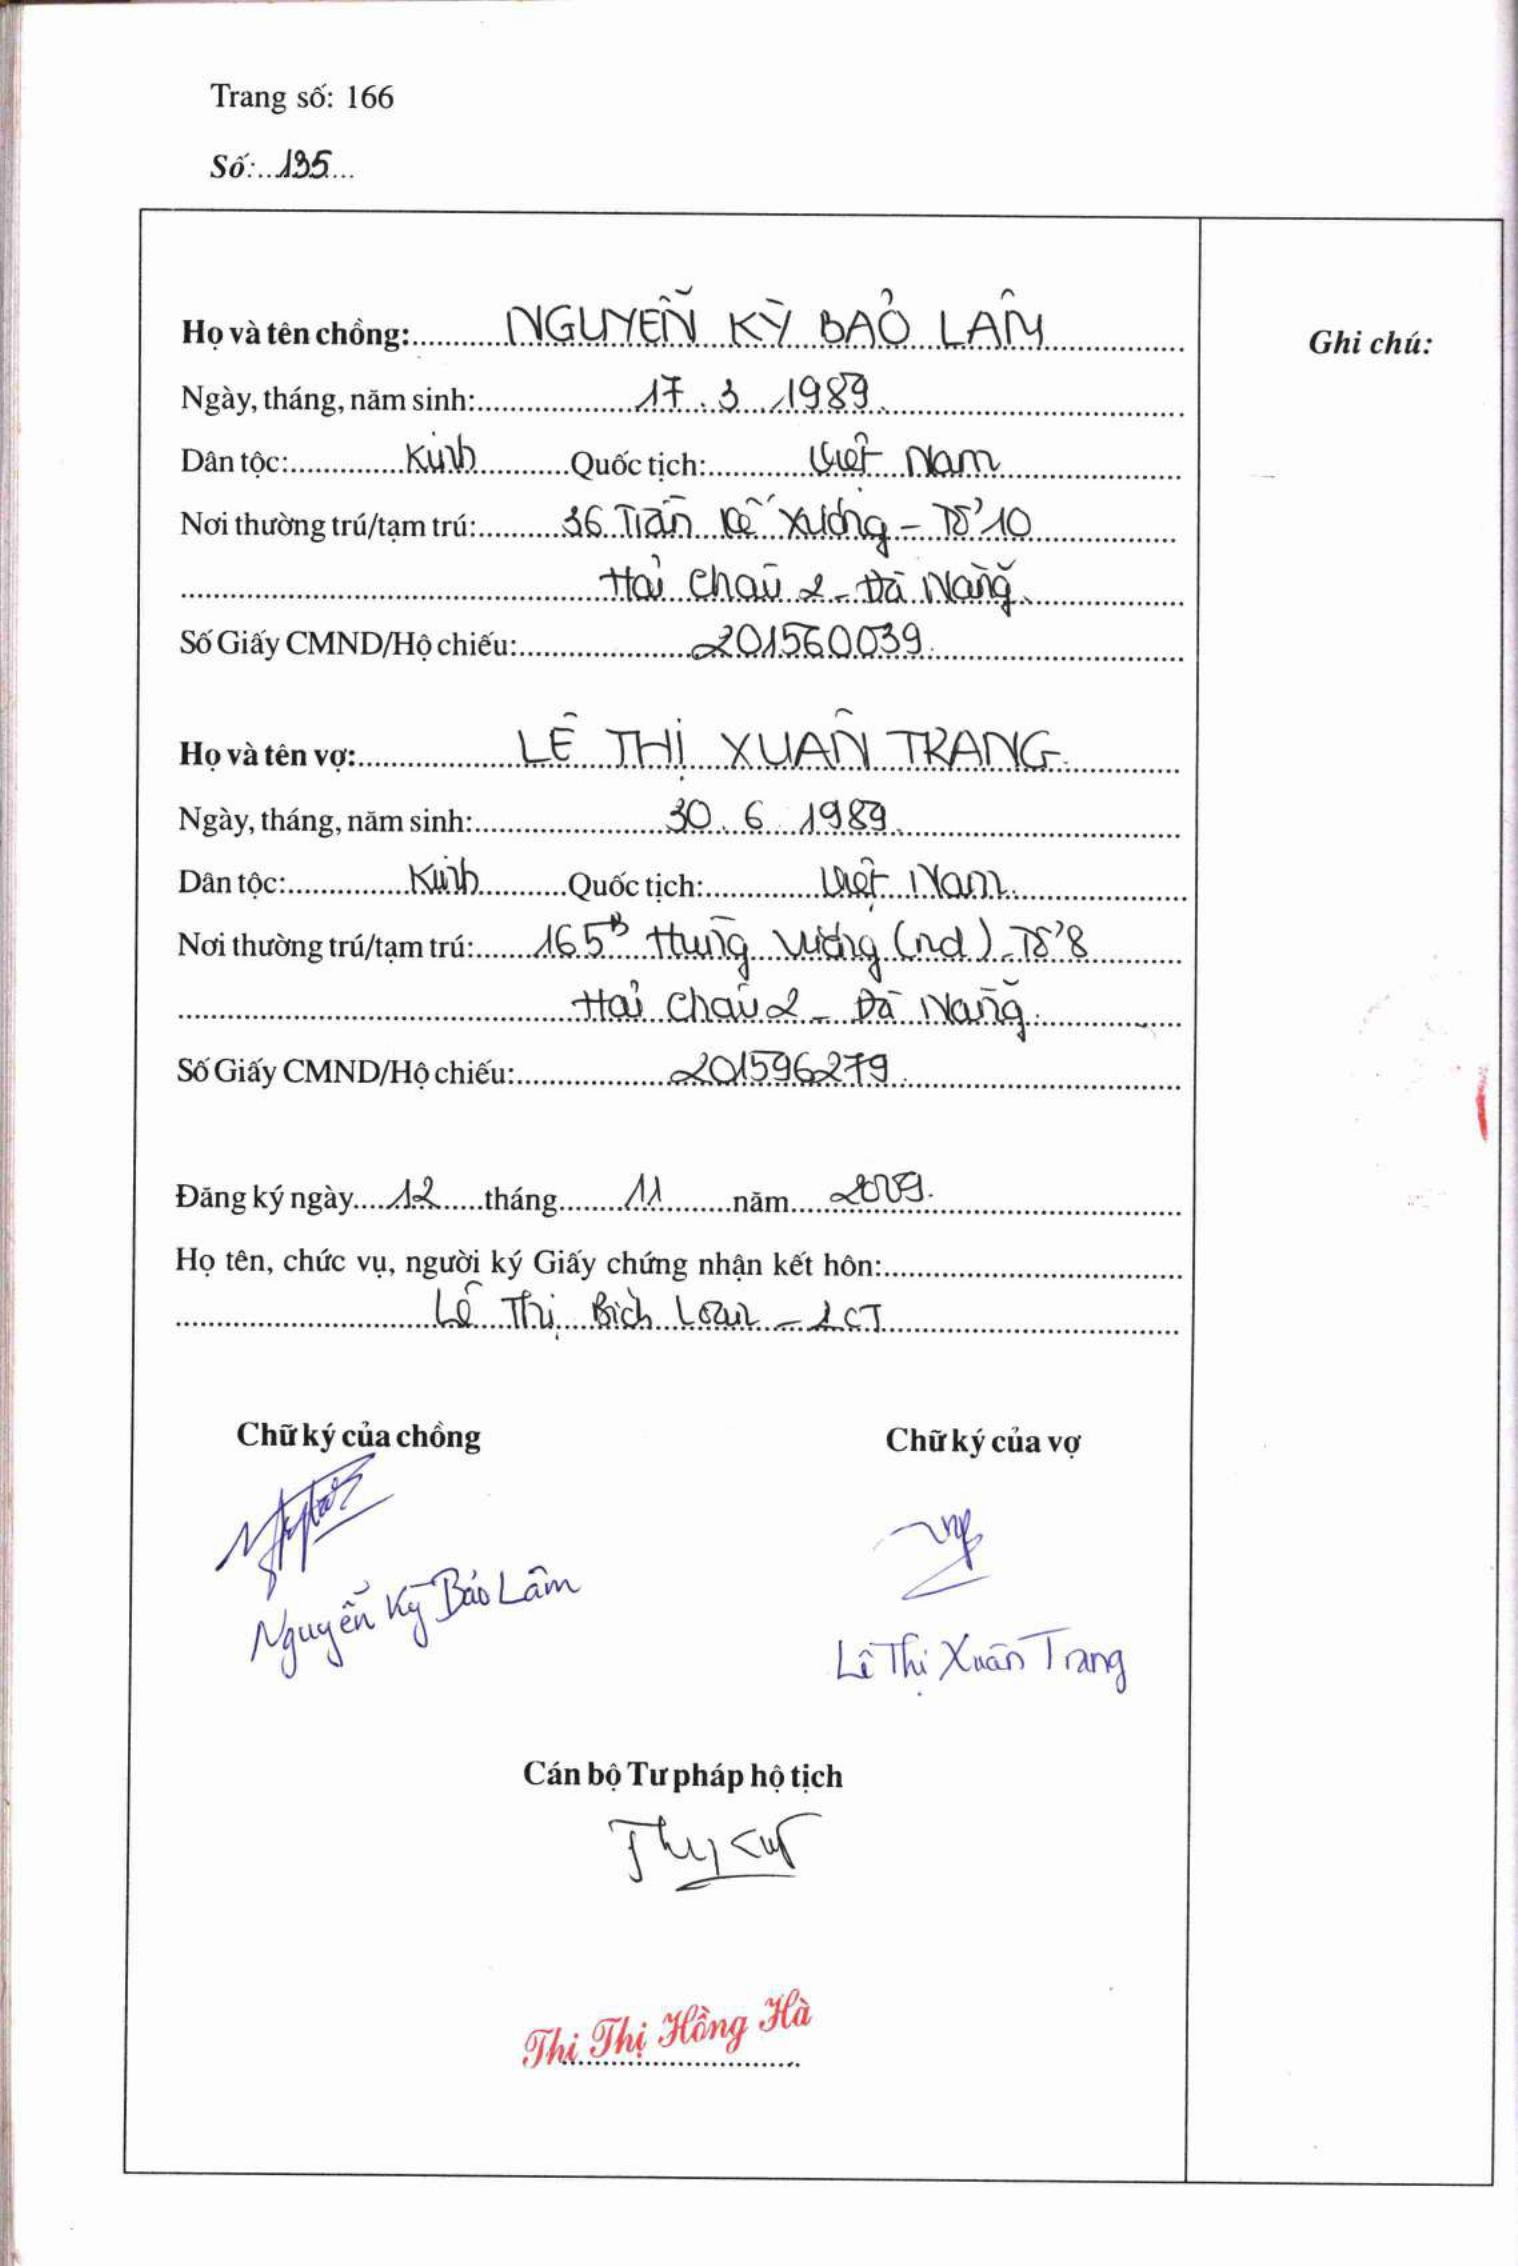 Trang số: 166
Số: 135
Họ và tên chồng: NGUYỄN KỲ BẢO LÂM
Ghi chú:
Ngày, tháng, năm sinh: 17. 3. 1989
Dân tộc: Kinh Quốc tịch: Việt Nam
Nơi thường trú/tạm trú: 36 Trần Kế Xương - Tổ 10
Hải Châu 2 - Đà Nẵng
Số Giấy CMND/Hộ chiếu: 201560039
Họ và tên vợ: LÊ THỊ XUÂN TRANG
Ngày, tháng, năm sinh: 30. 6. 1989
Dân tộc: Kinh Quốc tịch: Việt Nam
Nơi thường trú/tạm trú: 165B Hùng Vương (nd) - Tổ 8
Hải Châu 2 - Đà Nẵng
Số Giấy CMND/Hộ chiếu: 201596279
Đăng ký ngày 12 tháng 11 năm 2009
Họ tên, chức vụ, người ký Giấy chứng nhận kết hôn:
Lê Thị Bích Loan -
Chữ ký của chồng Chữ ký của vợ
Nguyễn Kỳ Bảo Lâm
Lê Thị Xuân Trang
Cán bộ Tư pháp hộ tịch
Thi Thị Hồng Hà